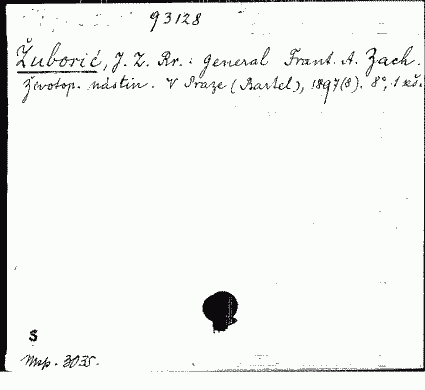 93128
Žuborić, J. Z. Rr.: General Frant. A. Zach.
Životop. nástin. V Praze (Bartel), 1897(8). 8°, 1 sš.
S
Msp. 3035.